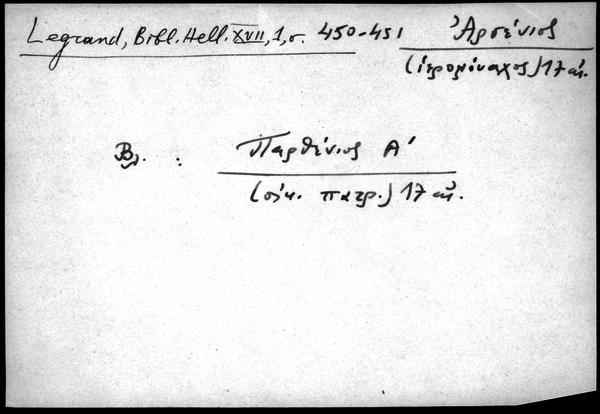 Legrand, Bibl. Hell. XVII, 1, σ. 450-451
Ἀρσένιος
(ἱερομόναχος) 17 αἰ.
Βλ. :
Παρθένιος Α΄
(οἰκ. πατρ.) 17 αἰ.